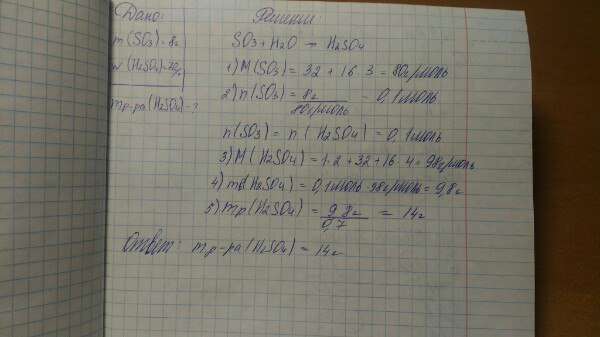 Дано:
m(SO3)=8г
w(H2SO4)=70%
mр-ра(H2SO4)-?
Решение
SO3+H2O → H2SO4
1) M(SO3) = 32 + 16·3 = 80г/моль
2) n(SO3) = 8г / 80г/моль = 0,1моль
n(SO3) = n(H2SO4) = 0,1моль
3) M(H2SO4) = 1·2+32+16·4 = 98г/моль
4) mв(H2SO4) = 0,1моль·98г/моль = 9,8г
5) mр(H2SO4) = 9,8г / 0,7 = 14г
Ответ: mр-ра(H2SO4) = 14г